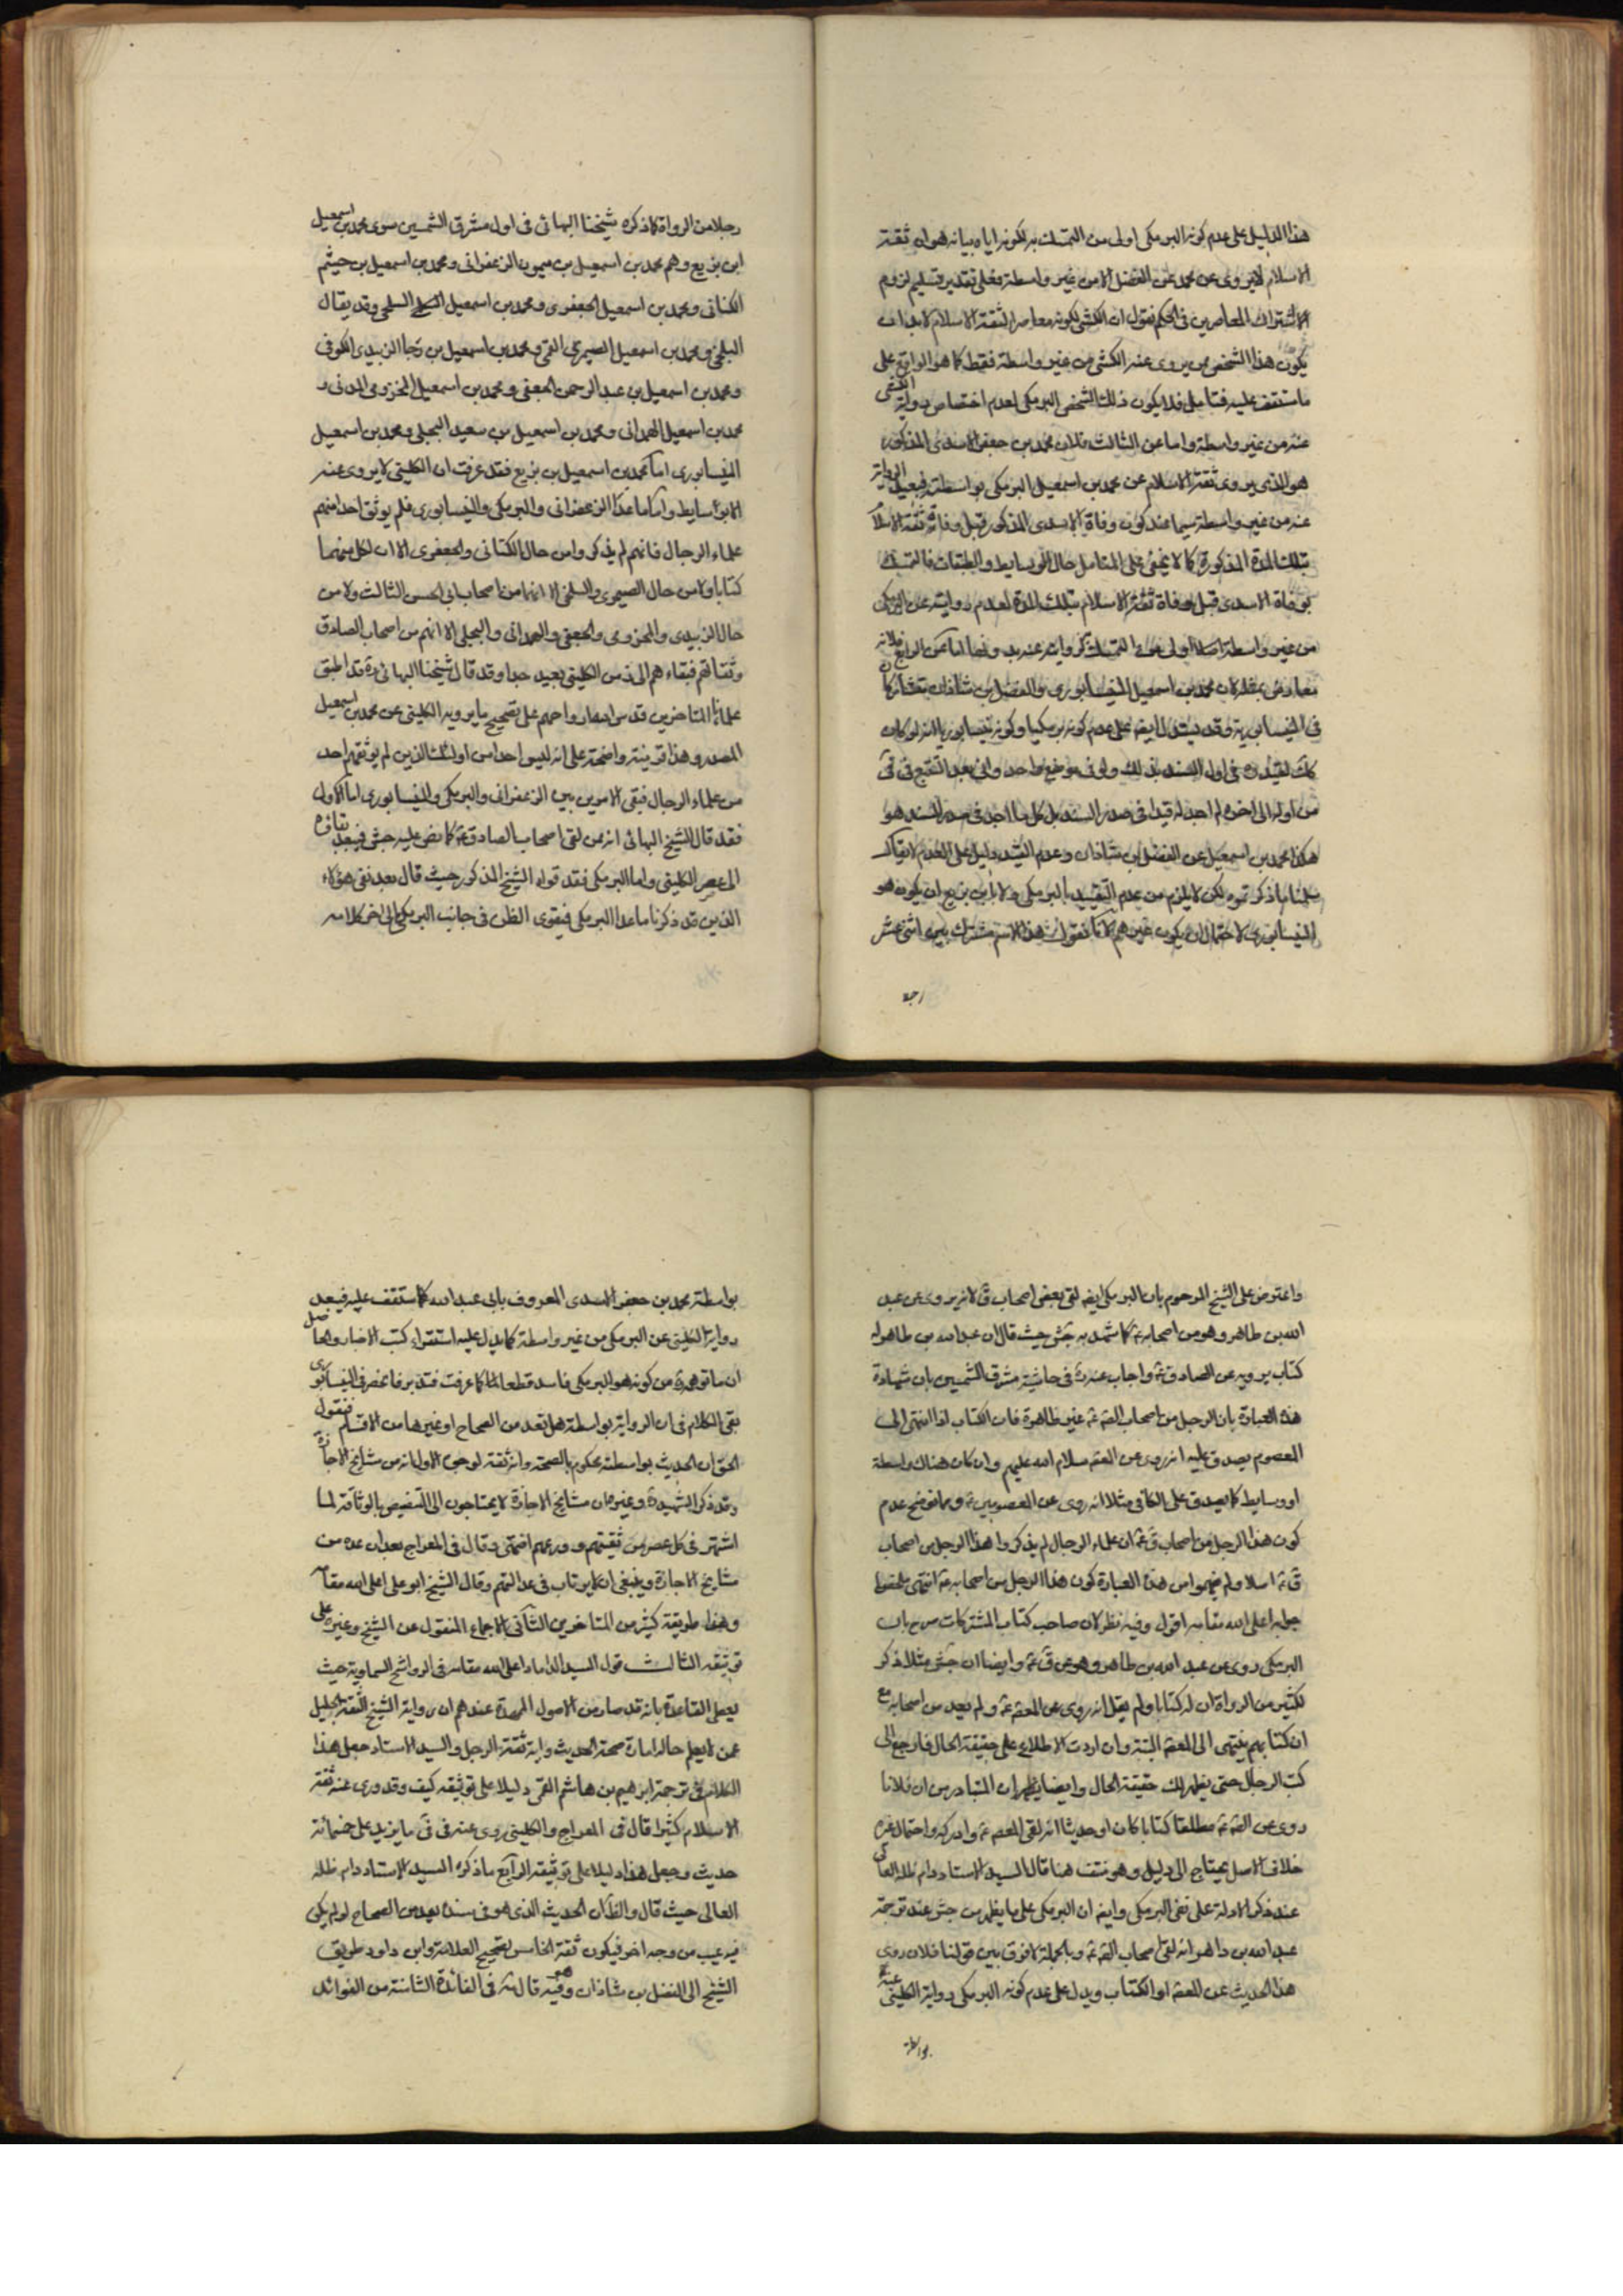 هذا الدليل على عدم كونه البرمكى اولى من التمسك به لكونه اياه بيانه هو ان ثقة
الاسلام لا يروى عن محمد عن الفضل الا من غير واسطة فعلى تقدير تسليم لزوم
الاشتراك المعاصرين فى الحكم نقول ان الكشى لكونه معاصرا لثقة الاسلام لابد ان
يكون هذا الشخص ممن يروى عنه الكشى من غير واسطة فقط كما هو الواقع على
ما ستقف عليه فتامل فلا يكون ذلك الشخص البرمكى لعدم اختصاص رواية الكشى
عنه من غير واسطة واما عن الثالث فلان محمد بن جعفر الاسدى المذكور
هو الذى يروى ثقة الاسلام عن محمد بن اسمعيل البرمكى بواسطته فيبعد الرواية
عنه من غير واسطة سيما عند كون وفاة الاسدى المذكور قبل وفاة ثقة الاسلام
بتلك المدة المذكورة كما لا يخفى على المتامل حال الوسايط والطبقات فالتمسك
بوفاة الاسدى قبل وفاة ثقة الاسلام بتلك المدة لعدم روايته عن البرمكى
من غير واسطة اصلا اولى من التمسك لروايته عنه بدونها اما عن الرابع فلانه
معارض بمثله لان محمد بن اسمعيل النيسابورى والفضل بن شاذان تشاركا
فى النيسابورية وقد يستدل ايضه على عدم كونه برمكيا وكونه نيسابوريا انه لو كان
كك لقيده فى اول السند بذلك ولو فى موضع واحد وانى بعد التتبع فى فى
من اوله الى اخره لم اجد له قيدا فى صدر السند بل كل ما اجد فى صدر السند هو
هكذا محمد بن اسمعيل عن الفضل بن شاذان وعدم التقييد دليل على العدم لا يقال
سلمنا ما ذكرتموه لكن لا يلزم من عدم التقييد بالبرمكى ولا بابن بزيع ان يكون هو
النيسابورى لاحتمال ان يكون غيرهم لانا نقول هذا الاسم مشترك بين اثنى عشر
رجلا
رجلا من الرواة كما ذكره شيخنا البهائى فى اول مشرق الشمسين سوى محمد بن اسمعيل
ابن بزيع وهم محمد بن اسمعيل بن ميمون الزعفرانى ومحمد بن اسمعيل بن خيثم
الكنانى ومحمد بن اسمعيل الجعفرى ومحمد بن اسمعيل السلمى وقد يقال
البلخى ومحمد بن اسمعيل الصيمرى القمى ومحمد بن اسمعيل بن رجا الزبيدى الكوفى
ومحمد بن اسمعيل بن عبد الرحمن الجعفى ومحمد بن اسمعيل المخزومى المدنى و
محمد بن اسمعيل الهمدانى ومحمد بن اسمعيل بن سعيد البجلى ومحمد بن اسمعيل
النيسابورى اما محمد بن اسمعيل بن بزيع فقد عرفت ان الكلينى لا يروى عنه
الا بوسايط واما ما عدا الزعفرانى والبرمكى والنيسابورى فلم يوثق احدا منهم
علماء الرجال فانهم لم يذكروا من حال الكنانى والجعفرى الا ان لكل منهما
كتابا ولا من حال الصيمرى والبلخى الا انهما من اصحاب ابى الحسن الثالث ولا من
حال الزبيدى والمخزومى والجعفى والهمدانى والبجلى الا انهم من اصحاب الصادق
وثقاتهم فبقاءهم الى زمن الكلينى بعيد جدا وقد قال شيخنا البهائى ره قد اطبق
علمائنا المتاخرين قدس اسرار ارواحهم على تصحيح ما يرويه الكلينى عن محمد بن اسمعيل
المصدر وهذا قرينة واضحة على انه ليس احدا من اولئك الذين لم يوثقهم احد
من علماء الرجال فبقى الامر بين الزعفرانى والبرمكى والنيسابورى اما الاول
فقد قال الشيخ البهائى انه ممن لقى اصحاب الصادق ع كما نص عليه جش فيبعد بقاؤه
الى عصر الكلينى واما البرمكى فقد قواه الشيخ المذكور حيث قال بعد نفى هؤلاء
الذين قد ذكرنا ما عدا البرمكى فيقوى الظن فى جانب البرمكى الى اخر كلامه
واعترض على الشيخ المرحوم بان البرمكى ايضه لقى بعض اصحاب ق لانه يروى عن عبد
الله بن طاهر وهو من اصحابه ع كما شهد به جش حيث قال ان عبد الله بن طاهر له
كتاب يرويه عن الصادق ع واجاب عنه ره فى حاشية مشرق الشمسين بان شهادة
هذه العبارة بان الرجل من اصحاب القه ع غير ظاهرة فان الكتاب اذا انتهى الى
المعصوم يصدق عليه انه روى عن القه سلام الله عليهم وان كان هناك واسطة
او وسايط كما يصدق على الكافى مثلا انه روى عن المعصومين ع ومما يوضح عدم
كون هذا الرجل من اصحاب ق ع ان علماء الرجال لم يذكروا هذا الرجل من اصحاب
ق ع اصلا ولم يفهموا من هذه العبارة كون هذا الرجل من اصحابه ع انتهى ملخصا
جوابه اعلى الله مقامه اقول وفيه نظر لان صاحب كتاب المشتركات صرح بان
البرمكى روى عن عبد الله بن طاهر وهو عن ق ع وايضا ان جش مثلا ذكر
لكثير من الرواة ان له كتابا ولم يقل انه روى عن المعصه ع ولم يعد من اصحابه مع
ان كتابهم ينتهى الى المعصه البتة وان اردت الاطلاع على حقيقة الحال فارجع الى
كتب الرجال حتى يظهر لك حقيقة الحال وايضا يظهر ان المتبادر من ان فلانا
روى عن القه ع مطلقا كتابا كان او حديثا انه لقى المعصه ع وادركه واحتمال غيره
خلاف الاصل يحتاج الى دليل وهو منتف هنا قال السيد الاستاد دام ظله العالى
عند ذكر الادلة على نفى البرمكى وايضه ان البرمكى على ما يظهر من جش عند ترجمة
عبد الله بن داهر انه لقى اصحاب القه ع وبالجملة لا فرق بين قولنا فلان روى
هذا الحديث عن المعصه او الكتاب ويدل على عدم كونه البرمكى رواية الكلينى عنه
بواسطة
بواسطة محمد بن جعفر الاسدى المعروف بابى عبد الله كما ستقف عليه فيبعد
رواية الكلينى عن البرمكى من غير واسطة كما يدل عليه استقراء كتب الاخبار والحاصل
ان ما توهمه ره من كونه هو البرمكى فاسد قطعا لما كما عرفت فتدبر فانحصر فى النيسابورى
بقى الكلام فى ان الرواية بواسطة هل تعد من الصحاح او غيرها من الاقسام فنقول
الحق ان الحديث بواسطته محكوم بالصحة وانه ثقة لوجوه الاول انه من مشايخ الاجازة
وقد ذكر الشهيد ره وغيره ان مشايخ الاجازة لا يحتاجون الى التنصيص بالوثاقة لما
اشتهر فى كل عصر من ثقتهم وورعهم انتهى وقال فى المعراج بعد ان عده من
مشايخ الاجازة وينبغى ان لا يرتاب فى عدالتهم وقال الشيخ ابو على اعلى الله مقامه
وهذا طريقة كثير من المتاخرين الثانى الاجماع المنقول عن الشيخ وغيره على
توثيقه الثالث قول السيد الداماد اعلى الله مقامه فى الرواشح السماوية حيث
يعطى القاعدة بانه قد صار من الاصول الممهدة عندهم ان رواية الشيخ الثقة الجليل
عمن لا يعلم حاله امارة صحة الحديث واية ثقة الرجل والسيد الاستاد جعل هذا
الكلام فى ترجمة ابرهيم بن هاشم القمى دليلا على توثيقه كيف وقد روى عنه ثقة
الاسلام كثيرا قال فى المعراج والكلينى روى عنه فى فى ما يزيد على خمسمائة
حديث وجعل هذا دليلا على توثيقه الرابع ما ذكره السيد الاستاد دام ظله
العالى حيث قال والظان الحديث الذى هو فى سنده يعد من الصحاح لو لم يكن
فيه عيب من وجه اخر فيكون ثقة الخامس تصحيح العلامة وابن داود طريق
الشيخ الى الفضل بن شاذان وهو فيه قال ره فى الفائدة الثامنة من الفوائد